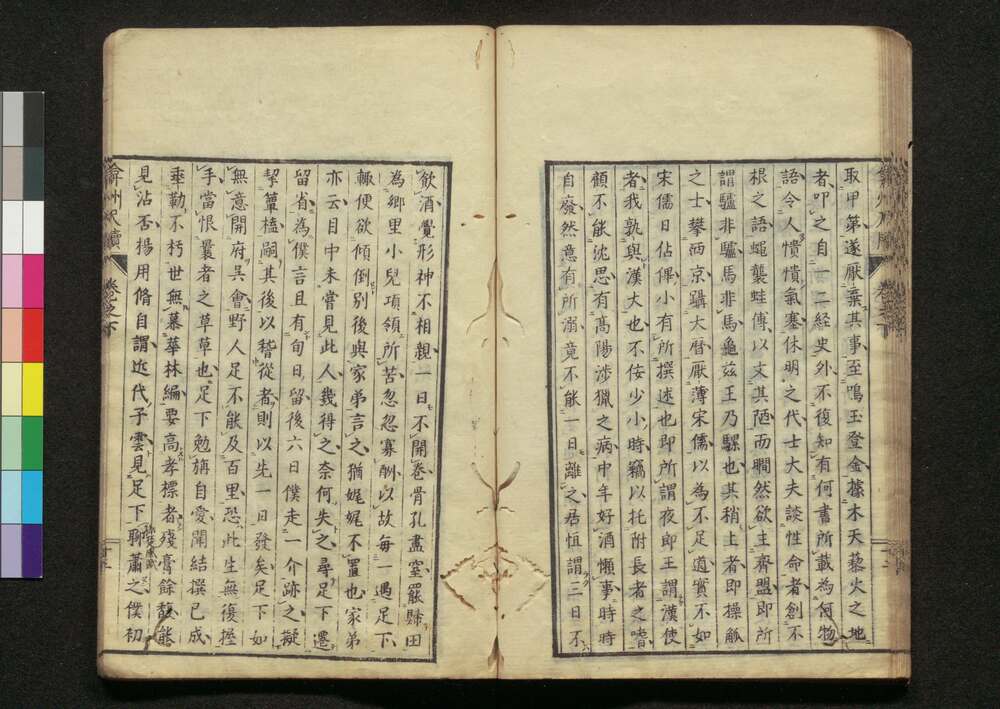 取甲第遂厭棄其事至鳴玉登金據木天藜火之地
者叩之自一二経史外不復知有何書所載為何物
語令人憒憒氣塞休明之代士大夫談性命者創不
根之語蠅襲蛙傳以文其陋而瞯然欲主齊盟即所
謂驢非驢馬非馬龜玆王乃騾也其稍上者即操觚
之士攀西京躡大曆厭薄宋儒以為不足道實不如
宋儒日佔俾小有所撰述也即所謂夜郎王謂漢使
者我孰與漢大也不佞少小時竊以托附長者之嗜
顧不能沈思有高陽涉獵之病中年好酒懶事時時
自廢然意有所溺竟不能一日離之居恒謂三日不
飲酒覺形神不相親一日不開卷骨孔盡窒罷歸田
為鄉里小兒項領所苦忽忽寡酬以故每一遇足下
輒便欲傾倒別後與家弟言之猶娓娓不置也家弟
亦云目中未嘗見此人幾得之奈何失之尋足下還
留省為僕言且有旬日留後六日僕走一介跡之擬
挈簟榼嗣其後以稽從者則以先一日發矣足下如
無意開府吳會野人足不能及百里恐此生無復握
手當恨曩者之草草也足下勉旃自愛開結撰已成
乘勒不朽世無慕華林編要高孝標者殘膏餘馥能
見沾否楊用脩自謂近代子雲見足下聊蕭之僕初
弇州尺牘
卷之下